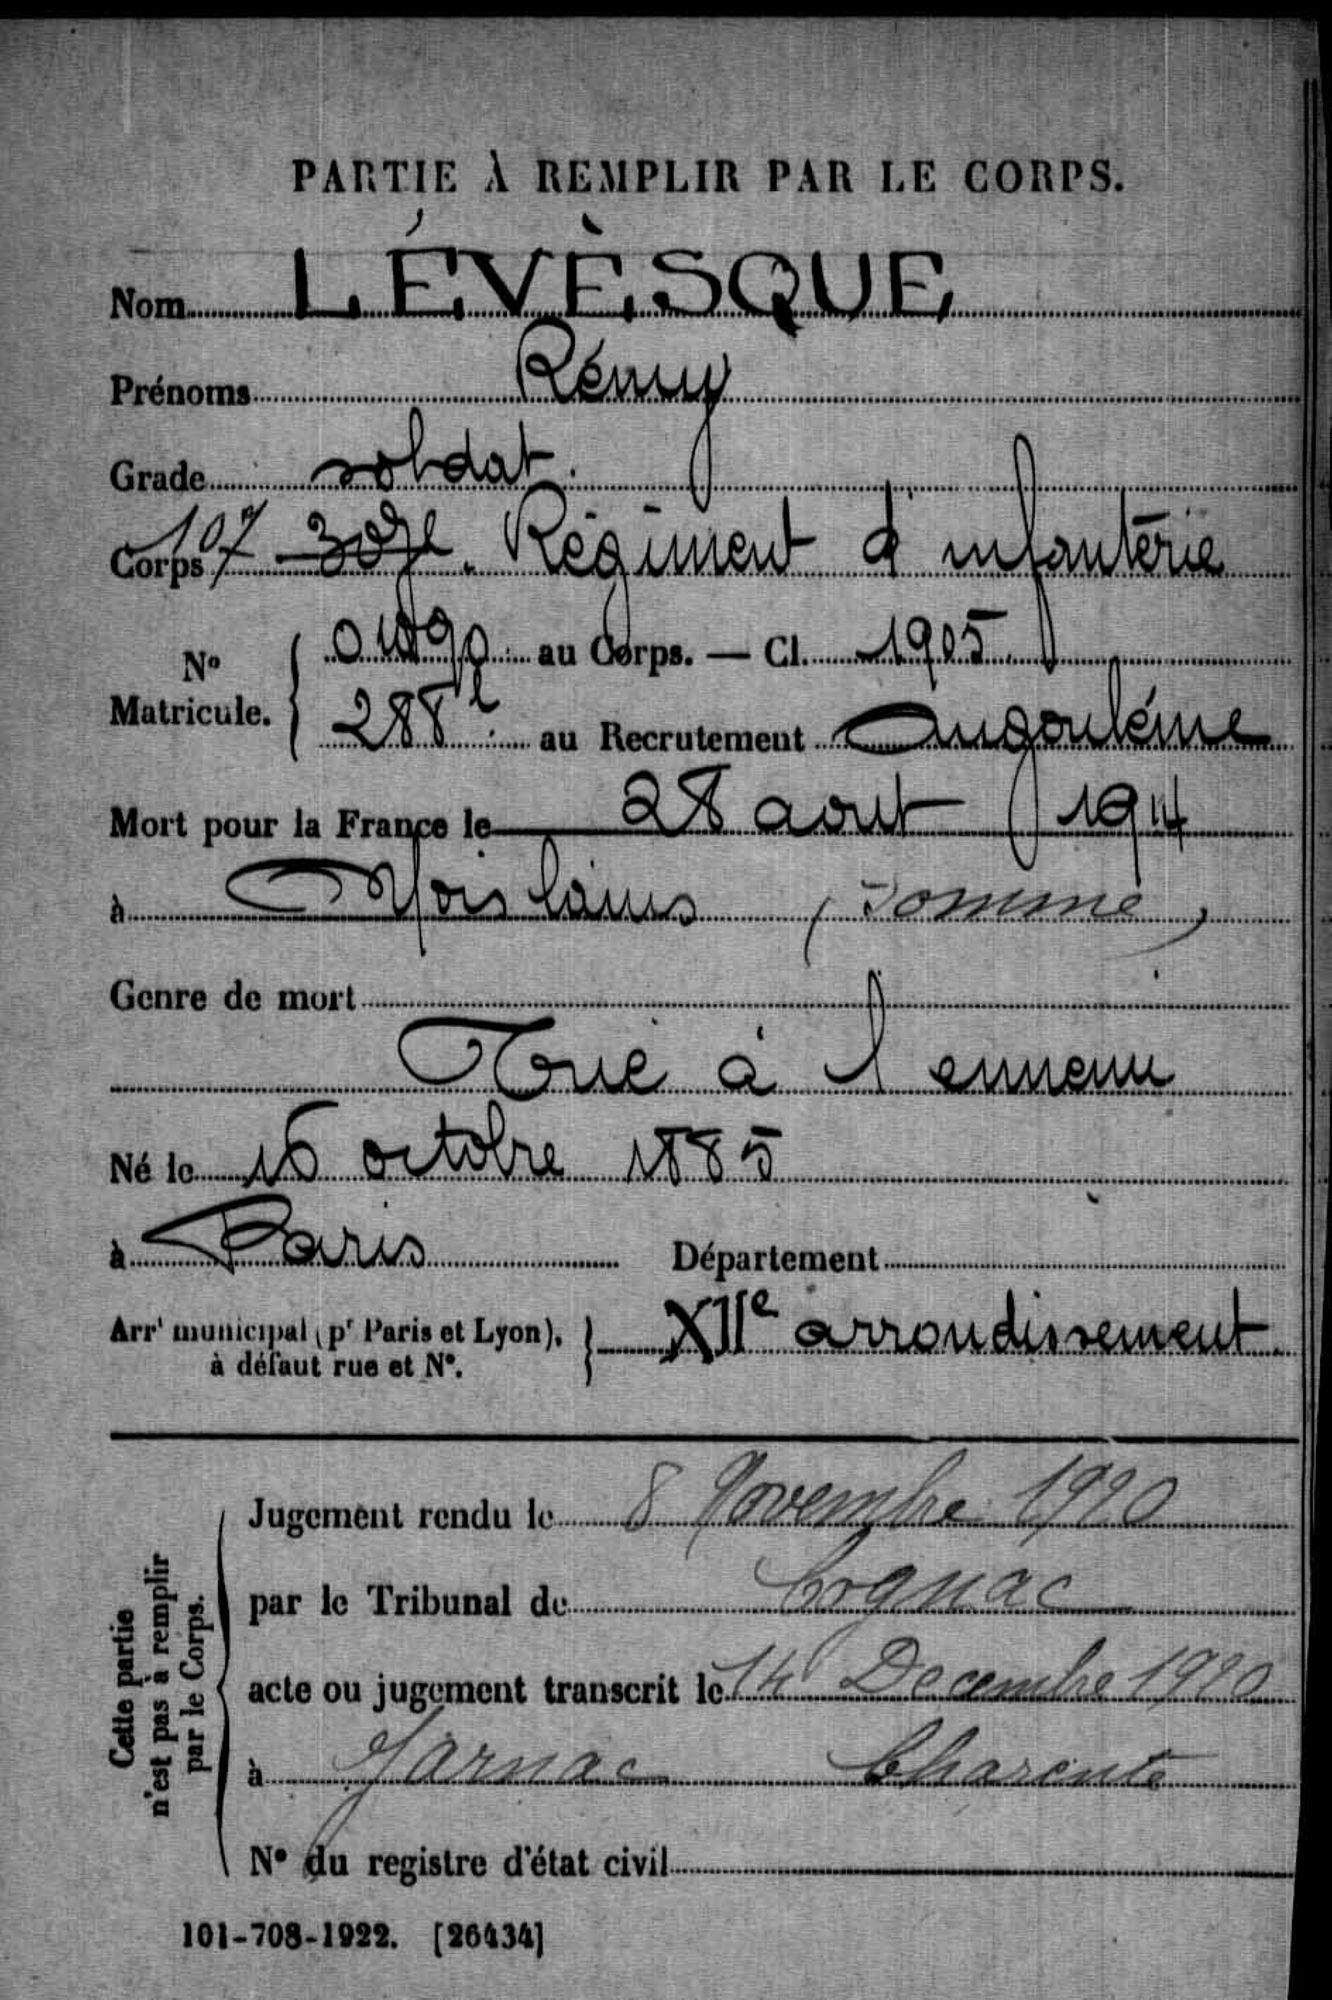 PARTIE À REMPLIR PAR LE CORPS.
Nom LÉVÈSQUE
Prénoms Rémy
Grade soldat.
Corps 107 307e. Régiment d'infanterie
N° Matricule. { au Corps. — Cl. 1905
288 au Recrutement Angoulême
Mort pour la France le 28 aout 1914
à Moislains (Somme)
Genre de mort
Tué à l'ennemi
Né le 16 octobre 1885
à Paris Département
Arr^t municipal (p^r Paris et Lyon), à défaut rue et N°. } XIIe arrondissement
Cette partie n'est pas à remplir par le Corps.
Jugement rendu le 8 Novembre 1920
par le Tribunal de Cognac
acte ou jugement transcrit le 14 Decembre 1920
à Jarnac Charente
N° du registre d'état civil
101-708-1922. [26434]